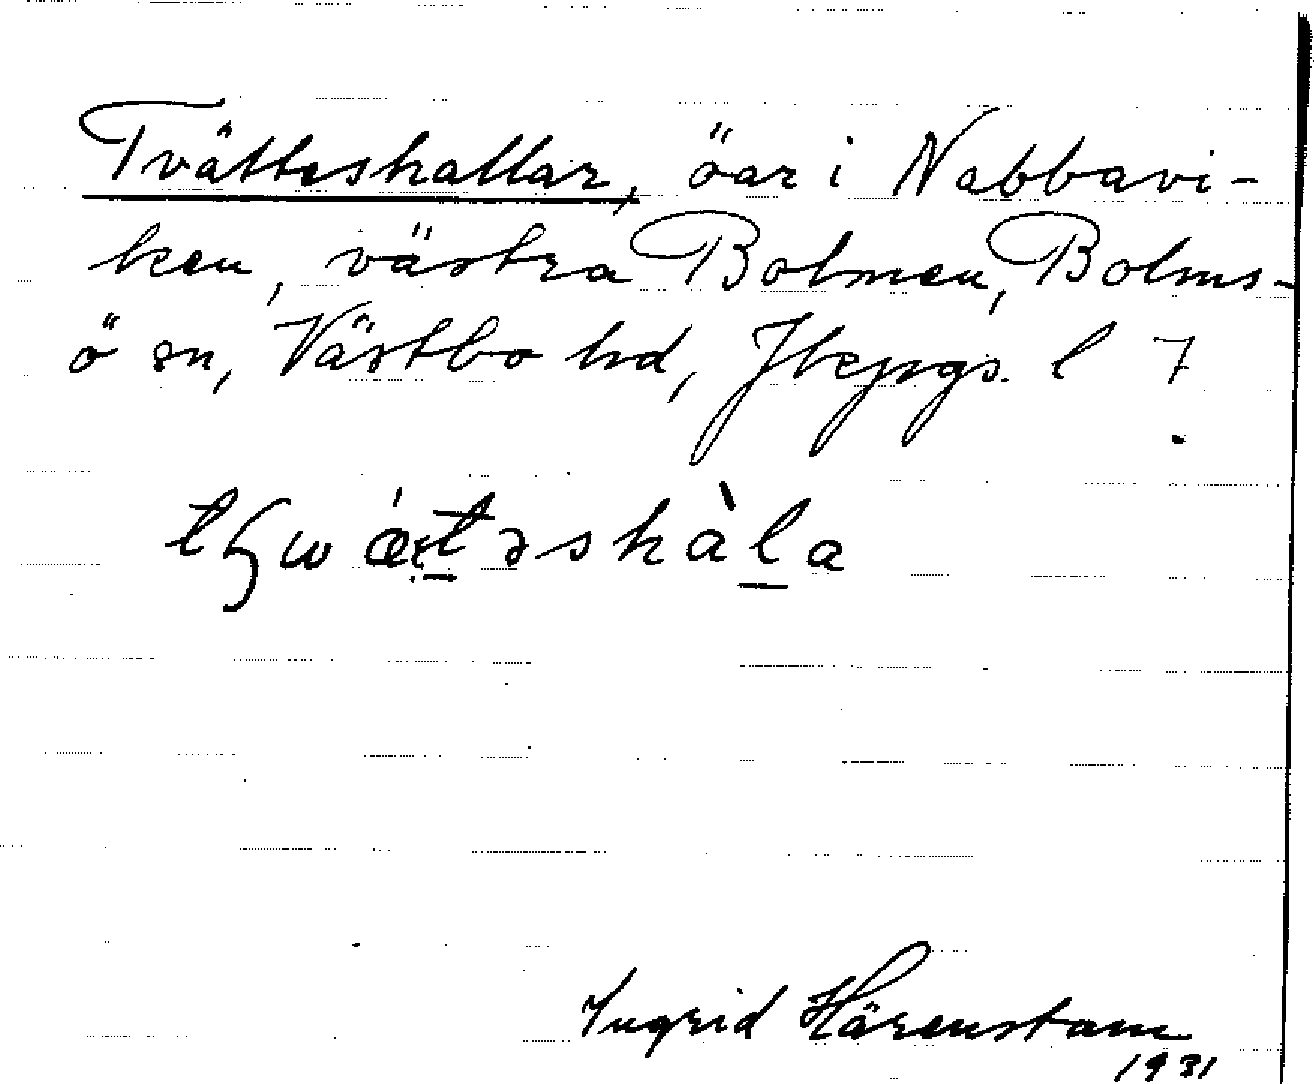 Tvätteshallar, öar i Nabbavi-
ken, västra Bolmen, Bolms-
ö sn, Västbo hd, Jkpgs. l 7.
Ingrid Härenstam
1931